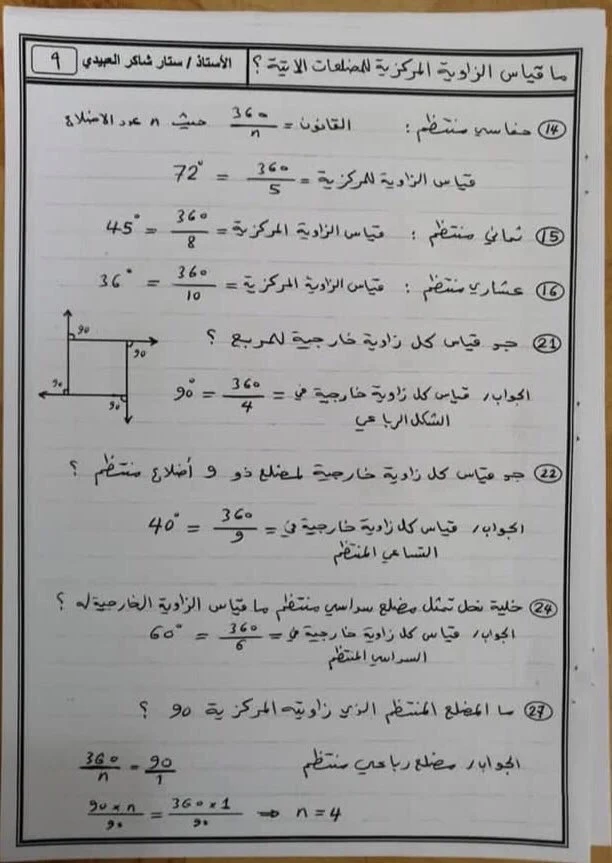 ما قياس الزاوية المركزية للمضلعات الاتية ؟ الأستاذ / ستار شاكر العبيدي ٩
(14) خماسي منتظم : القانون = 360/n حيث n عدد الاضلاع
قياس الزاوية المركزية = 360/5 = 72°
(15) ثماني منتظم : قياس الزاوية المركزية = 360/8 = 45°
(16) عشاري منتظم : قياس الزاوية المركزية = 360/10 = 36°
(21) جد قياس كل زاوية خارجية للمربع ؟
90 90 90 90
الجواب / قياس كل زاوية خارجية في = 360/4 = 90°
الشكل الرباعي
(22) جد قياس كل زاوية خارجية لمضلع ذو 9 أضلاع منتظم ؟
الجواب / قياس كل زاوية خارجية في = 360/9 = 40°
التساعي المنتظم
(24) خلية نحل تمثل مضلع سداسي منتظم ما قياس الزاوية الخارجية له ؟
الجواب / قياس كل زاوية خارجية في = 360/6 = 60°
السداسي المنتظم
(27) ما المضلع المنتظم الذي زاويته المركزية 90 ؟
الجواب / مضلع رباعي منتظم 360/n = 90/1
90×n/90 = 360×1/90 ⇒ n = 4